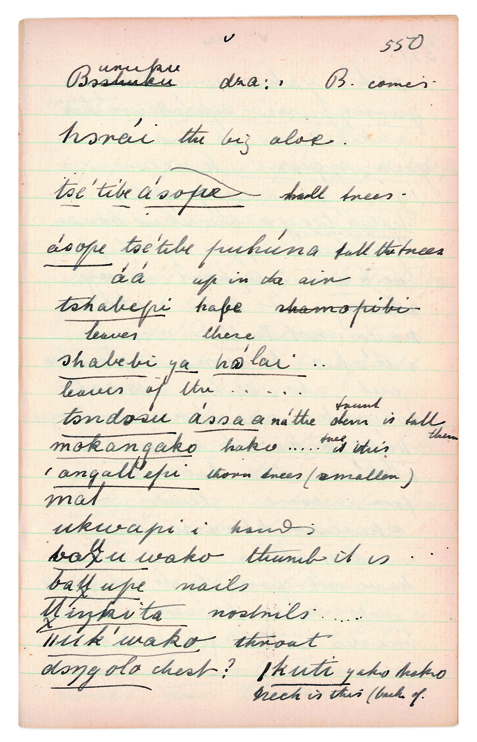 550
unuku
B̶s̶s̶h̶u̶k̶u̶ dza: , B. comes.
hsrái the big aloe.
tsé'tibe ásope tall trees.
ásope tsé'tibe fukúna tall the trees
áá up in da air
tshabepi habe s̶h̶a̶m̶o̶p̶i̶b̶i̶
leaves these
shabebi ya hálai ..
leaves of the ......
tsndosu ássaa náthe stem is tall
trunk
mokangako hako ..... tree it is this them
'angall'epi thorn trees (smaller)
mat
ukwapi i hands
u wako thumb it is ...
upe nails
nostrils ....
wako throat
dsngolo chest? kuti yako hako
neck is this (back of.